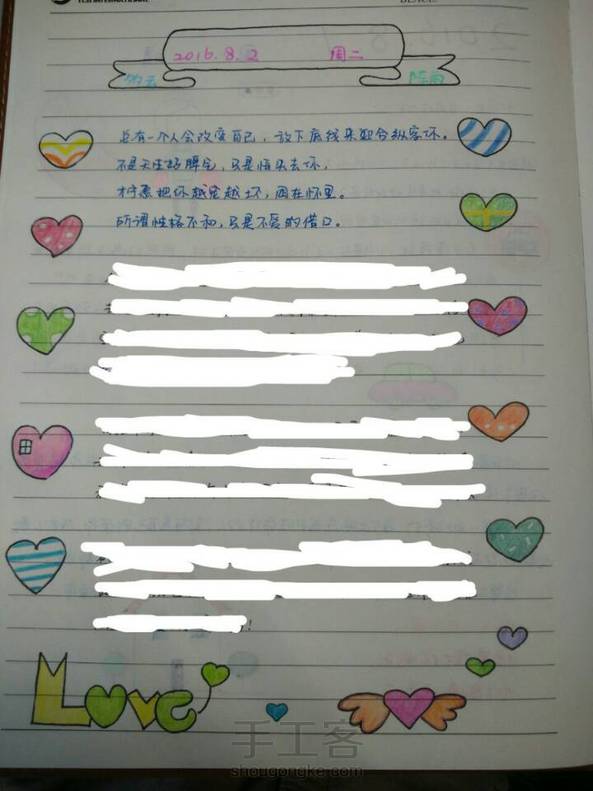 2016.8.2 周二
多云 阵雨
总有一个人会改变自己，放下底线来迎合纵容你。
不是天生好脾气，只是怕失去你，
才愿把你越宠越坏，困在怀里。
所谓性格不和，只是不爱的借口。
Love
手工客
shougongke.com